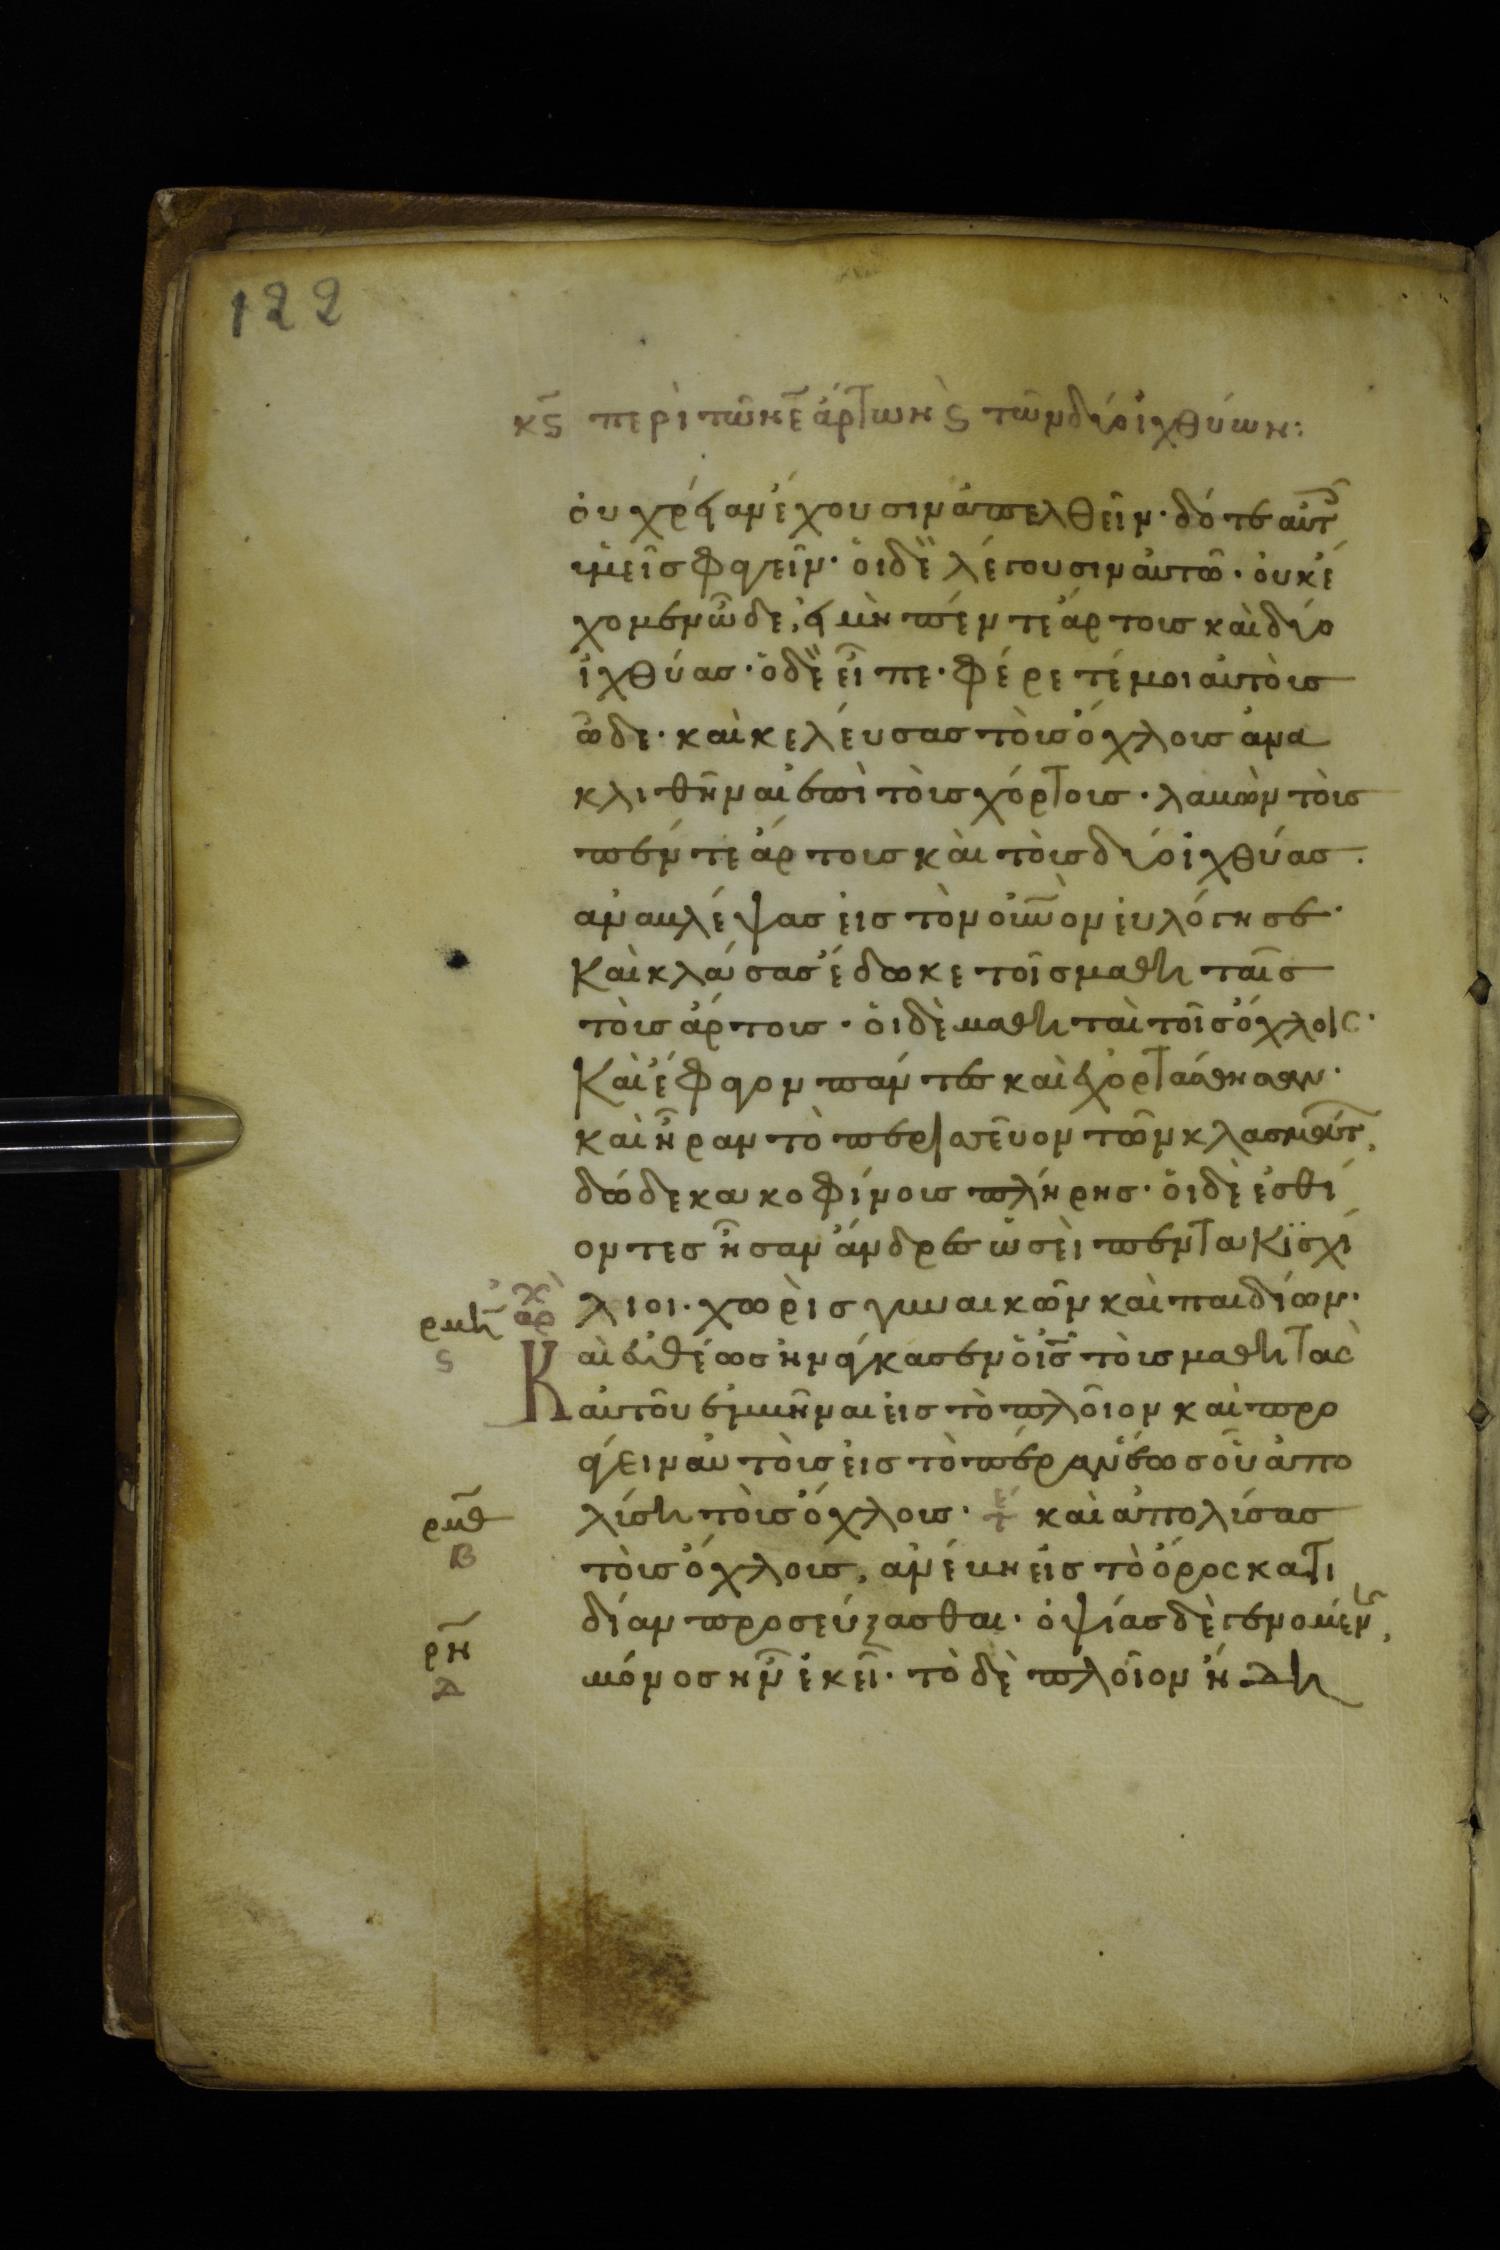 122
κϛ περὶ τῶν ε ἄρτων ϛ τῶν δύο ἰχθύων:
οὐ χρείαν ἔχουσιν ἀπελθεῖν· δότε αὐτ
ὑμεῖς φαγεῖν· οἱ δὲ λέγουσιν αὐτῶ· οὐκ έ
χομεν ὧδε, εἰ μὴ πέντε ἄρτους καὶ δύο
ἰχθύας· ὁ δὲ εἶπε· φέρετέ μοι αὐτοὺς
ὧδε· καὶ κελεύσας τοὺς ὄχλους ἀνα
κλιθῆναι ἐπὶ τοὺς χόρτους· λαβὼν τοὺς
πέντε ἄρτους καὶ τοὺς δύο ἰχθύας·
ἀναβλέψας εἰς τὸν οὐνὸν εὐλόγησε·
Καὶ κλάσας ἔδωκε τοῖς μαθηταῖς
τοὺς ἄρτους· οἱ δὲ μαθηταὶ τοῖς ὄχλοις·
Καὶ ἔφαγον πάντες καὶ ἐχορτάσθησαν·
καὶ ἦραν τὸ περισσεῦον τῶν κλασμάτ,
δώδεκα κοφίνους πλήρης· οἱ δὲ ἐσθί
οντες ἦσαν ἄνδρες ὡσεὶ πεντακισχί
λιοι· χωρὶς γυναικῶν καὶ παιδίων·
ρμη ϛ ἀρχ Καὶ εὐθέως ἠνάγκασεν ὁ ις τοὺς μαθητὰς
αὐτοῦ ἐμβῆναι εἰς τὸ πλοῖον καὶ προ
άγειν αὐτοὺς εἰς τὸ πέραν ἕως οὗ ἀπο
ρμθ β λύση τοὺς ὄχλους· τε καὶ ἀπολύσας
τοὺς ὄχλους, ἀνέβη εἰς τὸ ὄρος κατι
δίαν προσεύξασθαι· ὀψίας δὲ γενομέν,
ρν δ μόνος ην ἐκεῖ· τὸ δὲ πλοῖον ἤδη